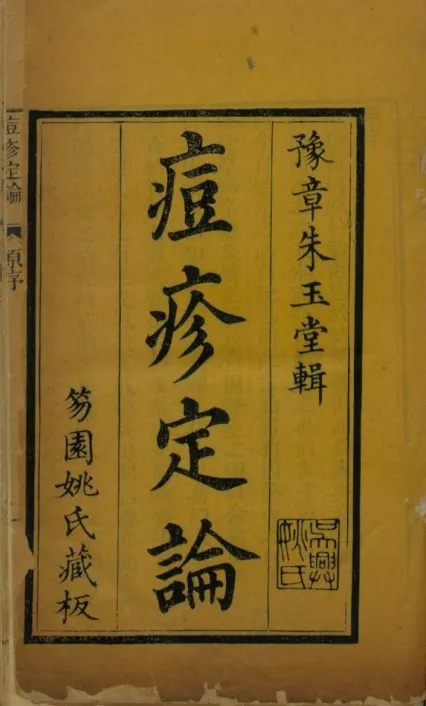 豫章朱玉堂輯
痘疹定論
笏園姚氏藏板
吳興姚氏
痘疹定論 原序